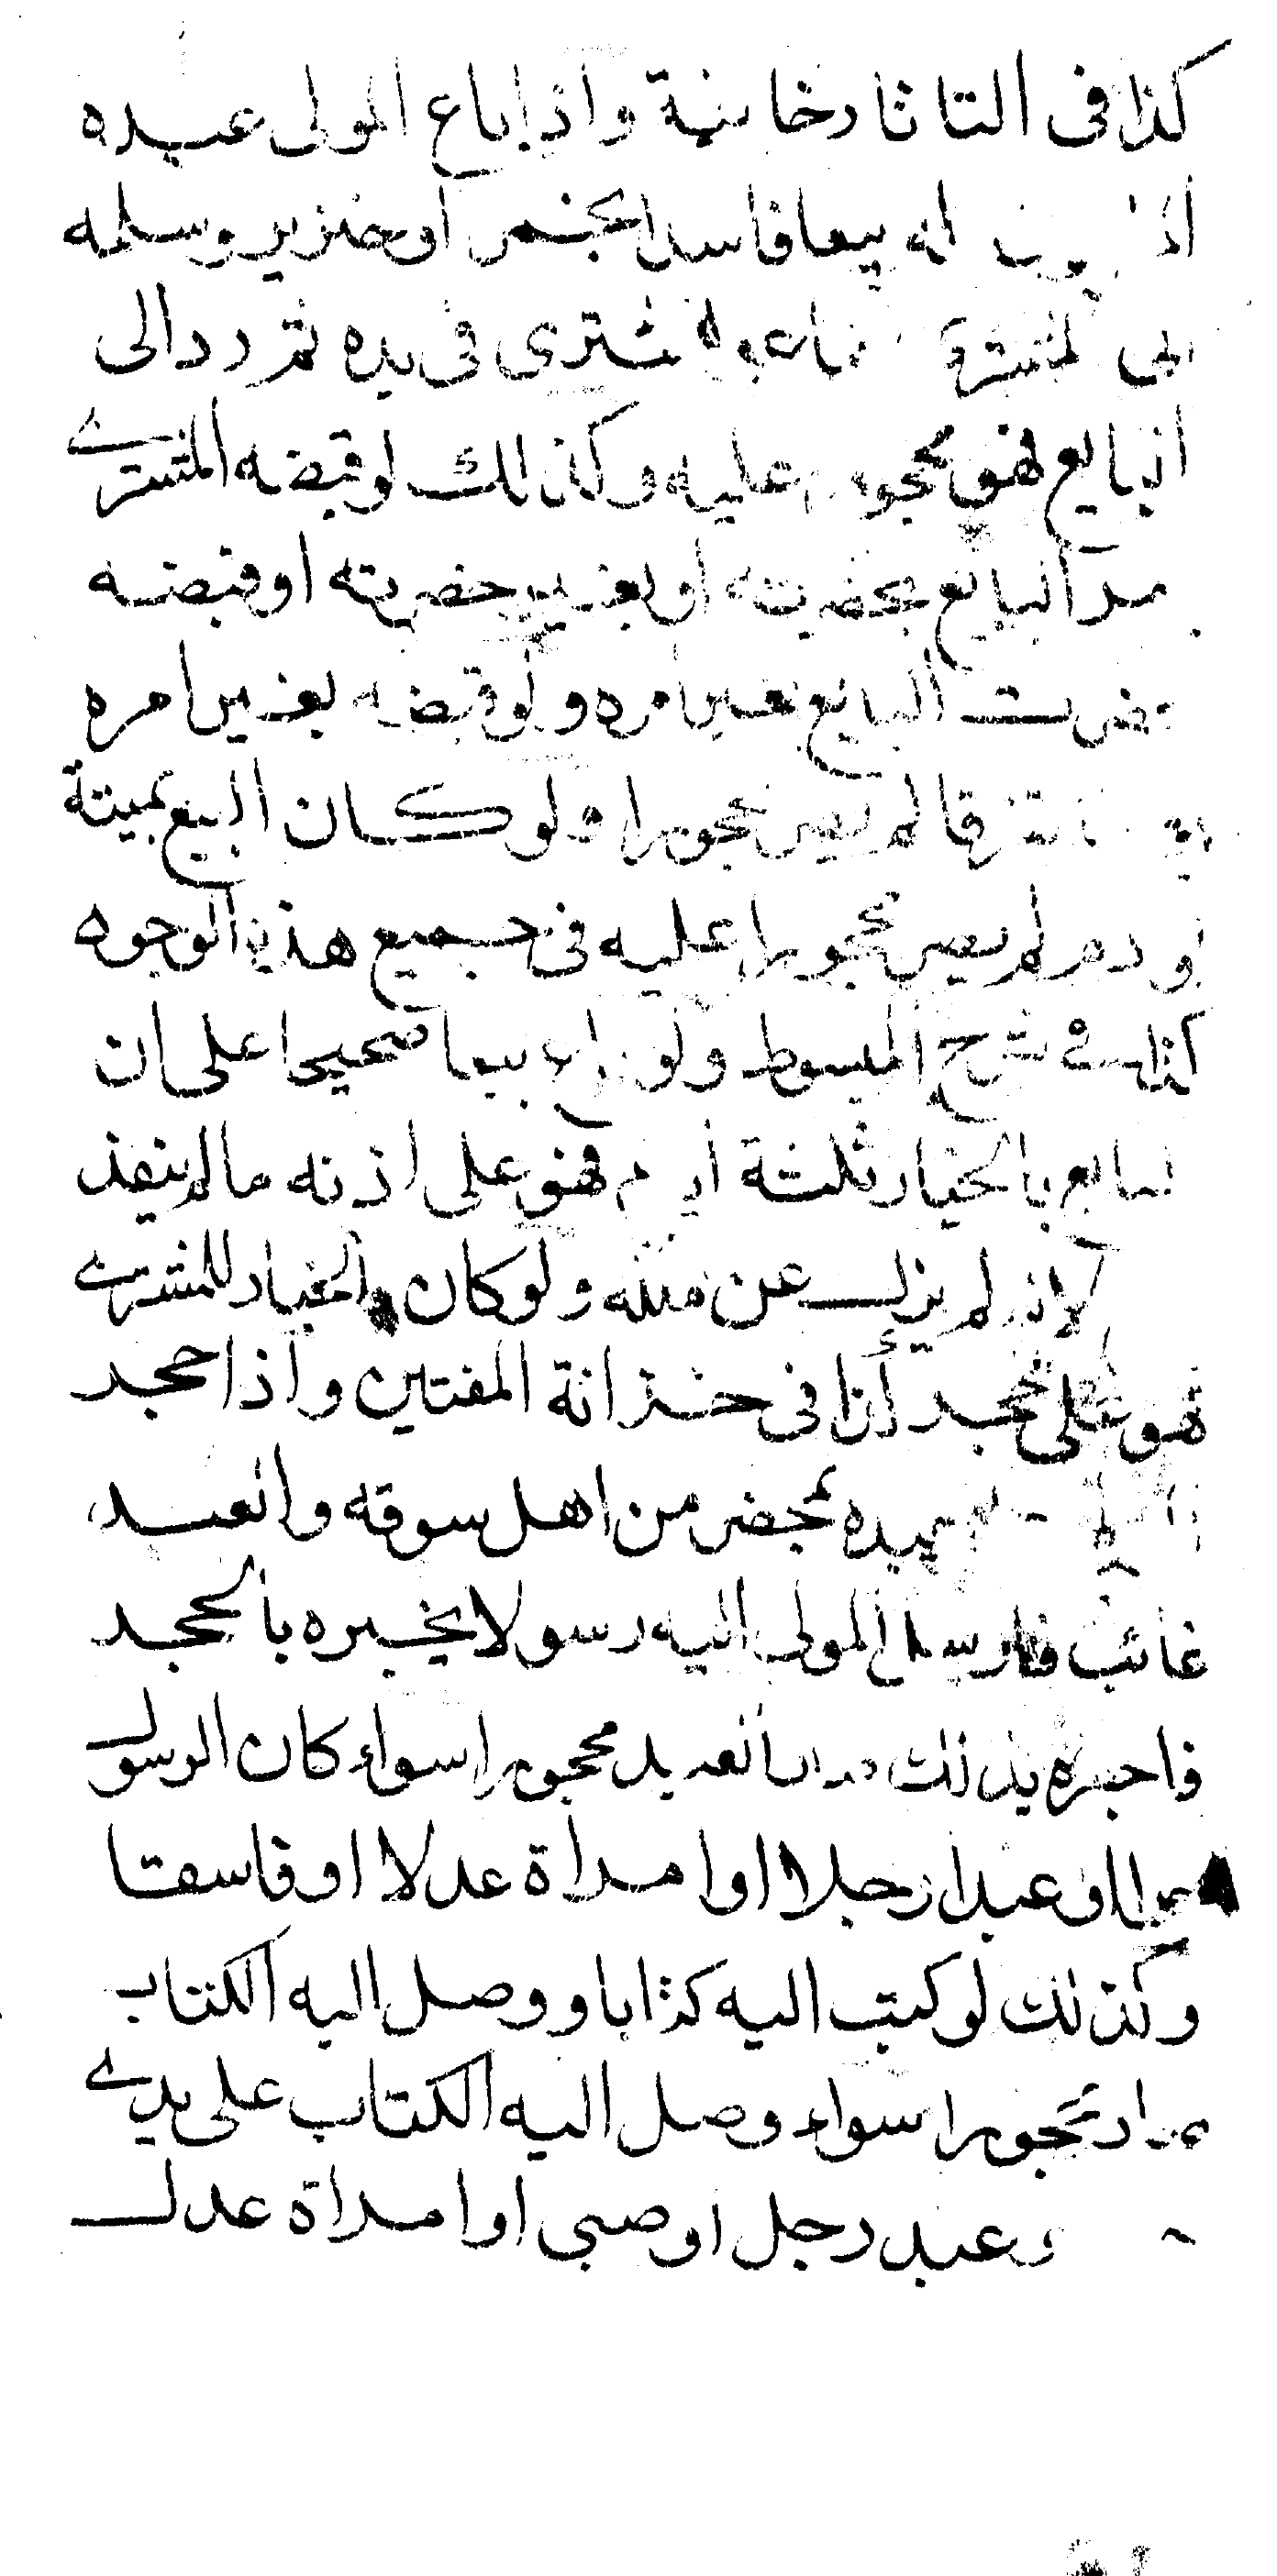 كذا في التاتارخانية واذا باع المولى عبده
له بيعا فاسدا بخمر او خنزير وسلمه
الى المشتري المشترى فى يده ثم رد الى
البايع فهو محجور عليه وكذلك لو قبضه المشتري
البايع بحضرته او بغير حضرته او قبضه
بحضرت البايع بغير امره ولو قبضه بغير امره
لم يصر محجورا ولو كان البيع بميتة
او دم لم يصر محجورا عليه فى جميع هذه الوجوه
كذا في شرح المبسوط ولو باع بيعا صحيحا على ان
البايع بالخيار ثلثة ايام فهو على اذنه ما لم ينفذ
لانه لم يزل عن ملكه ولو كان الخيار للمشتري
فهو على حجر كذا فى خزانة المفتين واذا حجر
عبده بمحضر من اهل سوقه والعبد
غائب فارسل المولى اليه رسولا يخبره بالحجر
فاخبره بذلك صار العبد محجورا سواء كان الرسول
حرا او عبدا رجلا او امراة عدلا او فاسقا
وكذلك لو كتب اليه كتابا ووصل اليه الكتاب
صار محجورا سواء وصل اليه الكتاب على يدي
او عبد رجل او صبى او امراة عدل